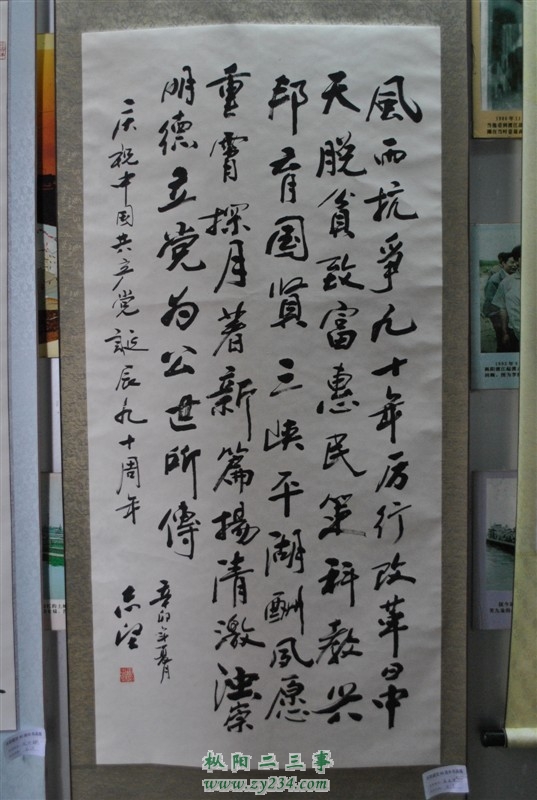 風雨抗爭九十年厉行改革日中
天脱貧致富惠民策科教兴
邦育国賢三峡平湖酬夙愿
重霄探月著新篇揚清激濁崇
明德立党为公世所傳
庆祝中国共产党誕辰九十周年
辛卯年夏月
枞阳二三事
www.zy234.com